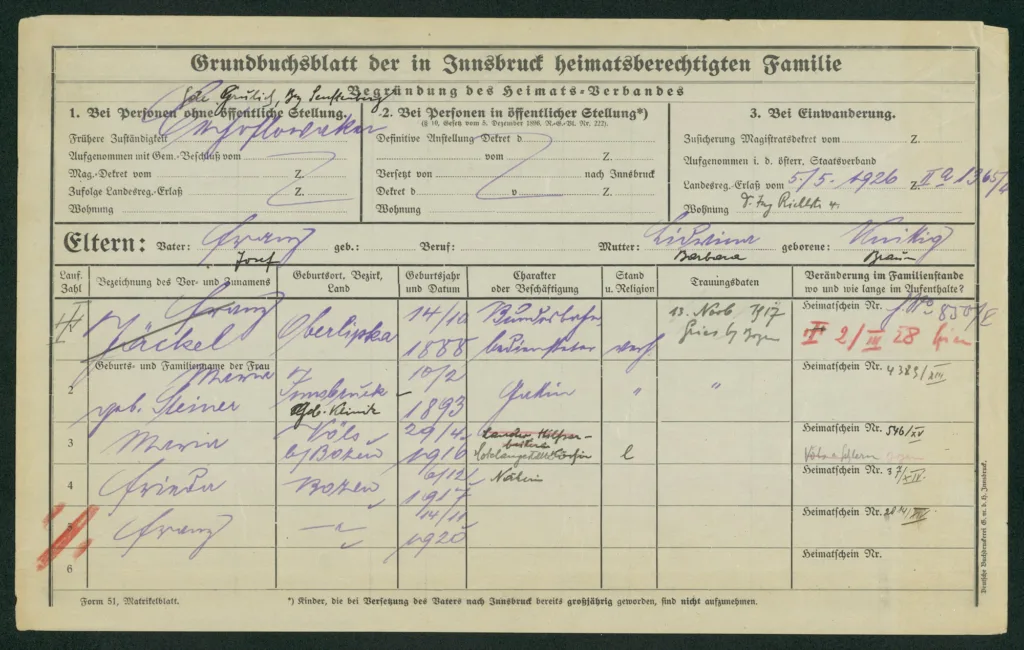 Grundbuchsblatt der in Innsbruck heimatsberechtigten Familie
Begründung des Heimats-Verbandes
Grulich, Bez Senftenberg
1. Bei Personen ohne öffentliche Stellung.
Frühere Zuständigkeit Tschechoslowakei
Aufgenommen mit Gem.-Beschluß vom
Mag.-Dekret vom Z.
Zufolge Landesreg.-Erlaß Z.
Wohnung
2. Bei Personen in öffentlicher Stellung*)
(§ 10, Gesetz vom 5. Dezember 1896, R.-G.-Bl. Nr. 222).
Definitive Anstellung Dekret d
vom Z.
Versetzt von nach Innsbruck
Dekret d v Z.
Wohnung
3. Bei Einwanderung.
Zusicherung Magistratsdekret vom Z.
Aufgenommen i. d. österr. Staatsverband
Landesreg.-Erlaß vom 5./5. 1926 Z. IIa 1365/
Wohnung
Eltern: Vater: Franz geb.: Beruf: Mutter: Ludwina geborene:
Josef Barbara Braun
Lauf. Zahl
Bezeichnung des Vor- und Zunamens
Geburtsort, Bezirk, Land
Geburtsjahr und Datum
Charakter oder Beschäftigung
Stand u. Religion
Trauungsdaten
Veränderung im Familienstande wo und wie lange im Aufenthalte?
1 Franz Jäckel Oberlipka 14/10 1888 Bundesbahnbediensteter verh 13. Novb 1917 Gries b/ Bozen Heimatschein Nr.
II 2/III 28
Geburts- und Familienname der Frau
2 Maria geb. Steiner Innsbruck Geb. Klinik 10/2 1893 Gattin " " Heimatschein Nr. 4383/XIII
3 Maria Völs b/ Bozen 29/4 1916 l Heimatschein Nr. 546/XV
4 Frieda Bozen 6/12 1917 Näherin Heimatschein Nr. 37/XIV
5 Franz —"— 14/11 1920 Heimatschein Nr.
6 Heimatschein Nr.
Form 51, Matrikelblatt.
*) Kinder, die bei Versetzung des Vaters nach Innsbruck bereits großjährig geworden, sind nicht aufzunehmen.
Deutsche Buchdruckerei G. m. b. H. Innsbruck.